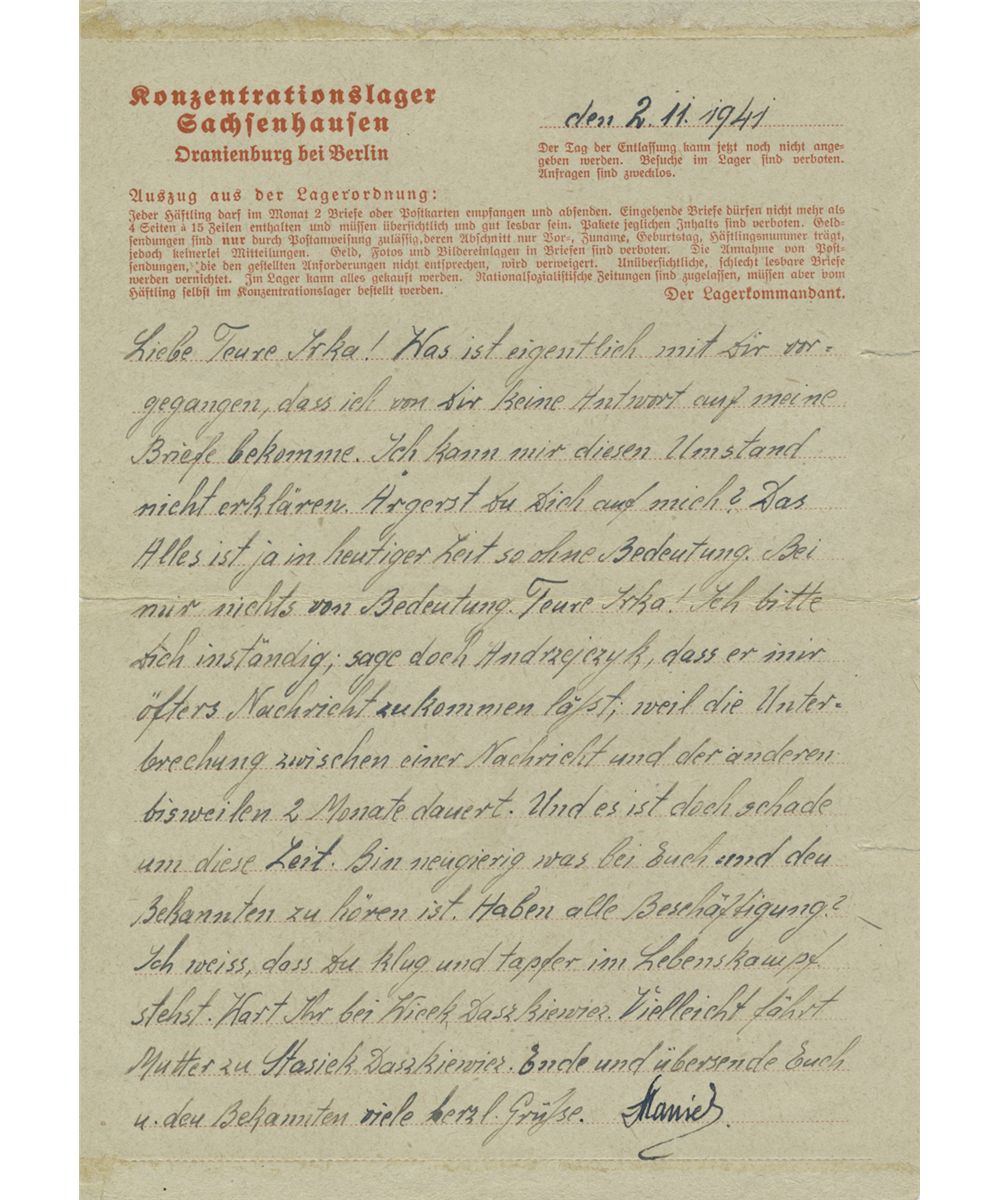 Konzentrationslager
Sachsenhausen
Oranienburg bei Berlin
den 2.11.1941
Der Tag der Entlassung kann jetzt noch nicht ange-
geben werden. Besuche im Lager sind verboten.
Anfragen sind zwecklos.
Auszug aus der Lagerordnung:
Jeder Häftling darf im Monat 2 Briefe oder Postkarten empfangen und absenden. Eingehende Briefe dürfen nicht mehr als
4 Seiten à 15 Zeilen enthalten und müssen übersichtlich und gut lesbar sein. Pakete jeglichen Inhalts sind verboten. Geld-
sendungen sind nur durch Postanweisung zulässig, deren Abschnitt nur Vor-, Zuname, Geburtstag, Häftlingsnummer trägt,
jedoch keinerlei Mitteilungen. Geld, Fotos und Bildereinlagen in Briefen sind verboten. Die Annahme von Post-
sendungen, die den gestellten Anforderungen nicht entsprechen, wird verweigert. Unübersichtliche, schlecht lesbare Briefe
werden vernichtet. Im Lager kann alles gekauft werden. Nationalsozialistische Zeitungen sind zugelassen, müssen aber vom
Häftling selbst im Konzentrationslager bestellt werden.
Der Lagerkommandant.
Liebe Teure Irka! Was ist eigentlich mit Dir vor-
gegangen, dass ich von Dir keine Antwort auf meine
Briefe bekomme. Ich kann mir diesen Umstand
nicht erklären. Ärgerst Du Dich auf mich? Das
Alles ist ja in heutiger Zeit so ohne Bedeutung. Bei
mir nichts von Bedeutung. Teure Irka! Ich bitte
Dich inständig; sage doch Andrzejczyk, dass er mir
öfters Nachricht zukommen läßt; weil die Unter-
brechung zwischen einer Nachricht und der anderen
bisweilen 2 Monate dauert. Und es ist doch schade
um diese Zeit. Bin neugierig was bei Euch und den
Bekannten zu hören ist. Haben alle Beschäftigung?
Ich weiss, dass Du klug und tapfer im Lebenskampf
stehst. Wart Ihr bei Wicek Daszkiewicz. Vielleicht fährt
Mutter zu Stasiek Daszkiewicz. Ende und übersende Euch
u. den Bekannten viele herzl. Grüße.